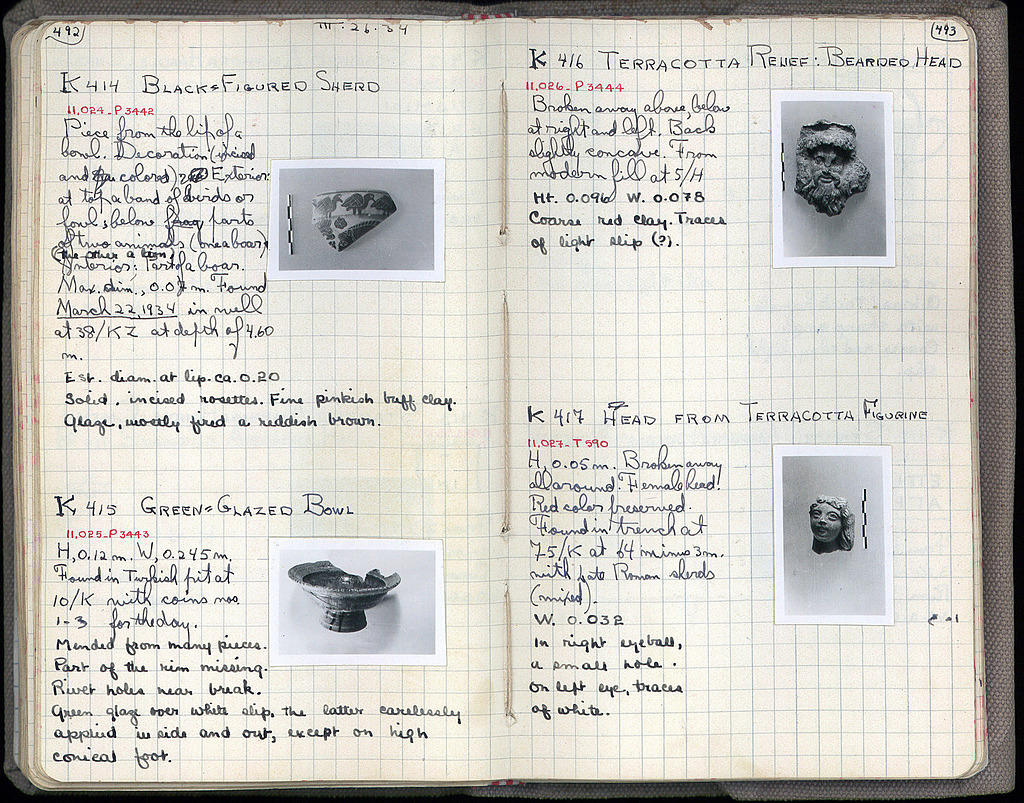 492
III-26-34
K 414 BLACK=FIGURED SHERD
11,024-P3442
Piece from the lip of a
bowl. Decoration (incised
and colors): Exterior:
at top a band of birds or
fowl; below parts
of two animals (one a boar,
(the other a lion)
Interior: Part of a boar.
Max. dim., 0.07 m. Found
March 22, 1934 in well
at 38/KZ at depth of 4.60
m.
Est. diam. at lip. ca. 0.20
Solid, incised rosettes. Fine pinkish buff clay.
Glaze, mostly fired a reddish brown.
K 415 GREEN=GLAZED BOWL
11,025-P3443
H, 0.12 m. W, 0.245 m.
Found in Turkish pit at
10/K with coins nos.
1-3 for the day.
Mended from many pieces.
Part of the rim missing.
Rivet holes near break.
Green glaze over white slip, the latter carelessly
applied inside and out, except on high
conical foot.
493
K 416 TERRACOTTA RELIEF: BEARDED HEAD
11,026-P3444
Broken away above, below
at right and left. Back
slightly concave. From
modern fill at 5/H
Ht. 0.096 W. 0.078
Coarse red clay. Traces
of light slip (?).
K 417 HEAD FROM TERRACOTTA FIGURINE
11,027-T590
H, 0.05 m. Broken away
all around. Female head.
Red color preserved.
Found in trench at
75/K at 64 minus 3m.
with late Roman sherds
(mixed).
W. 0.032
In right eyeball,
a small hole.
On left eye, traces
of white.